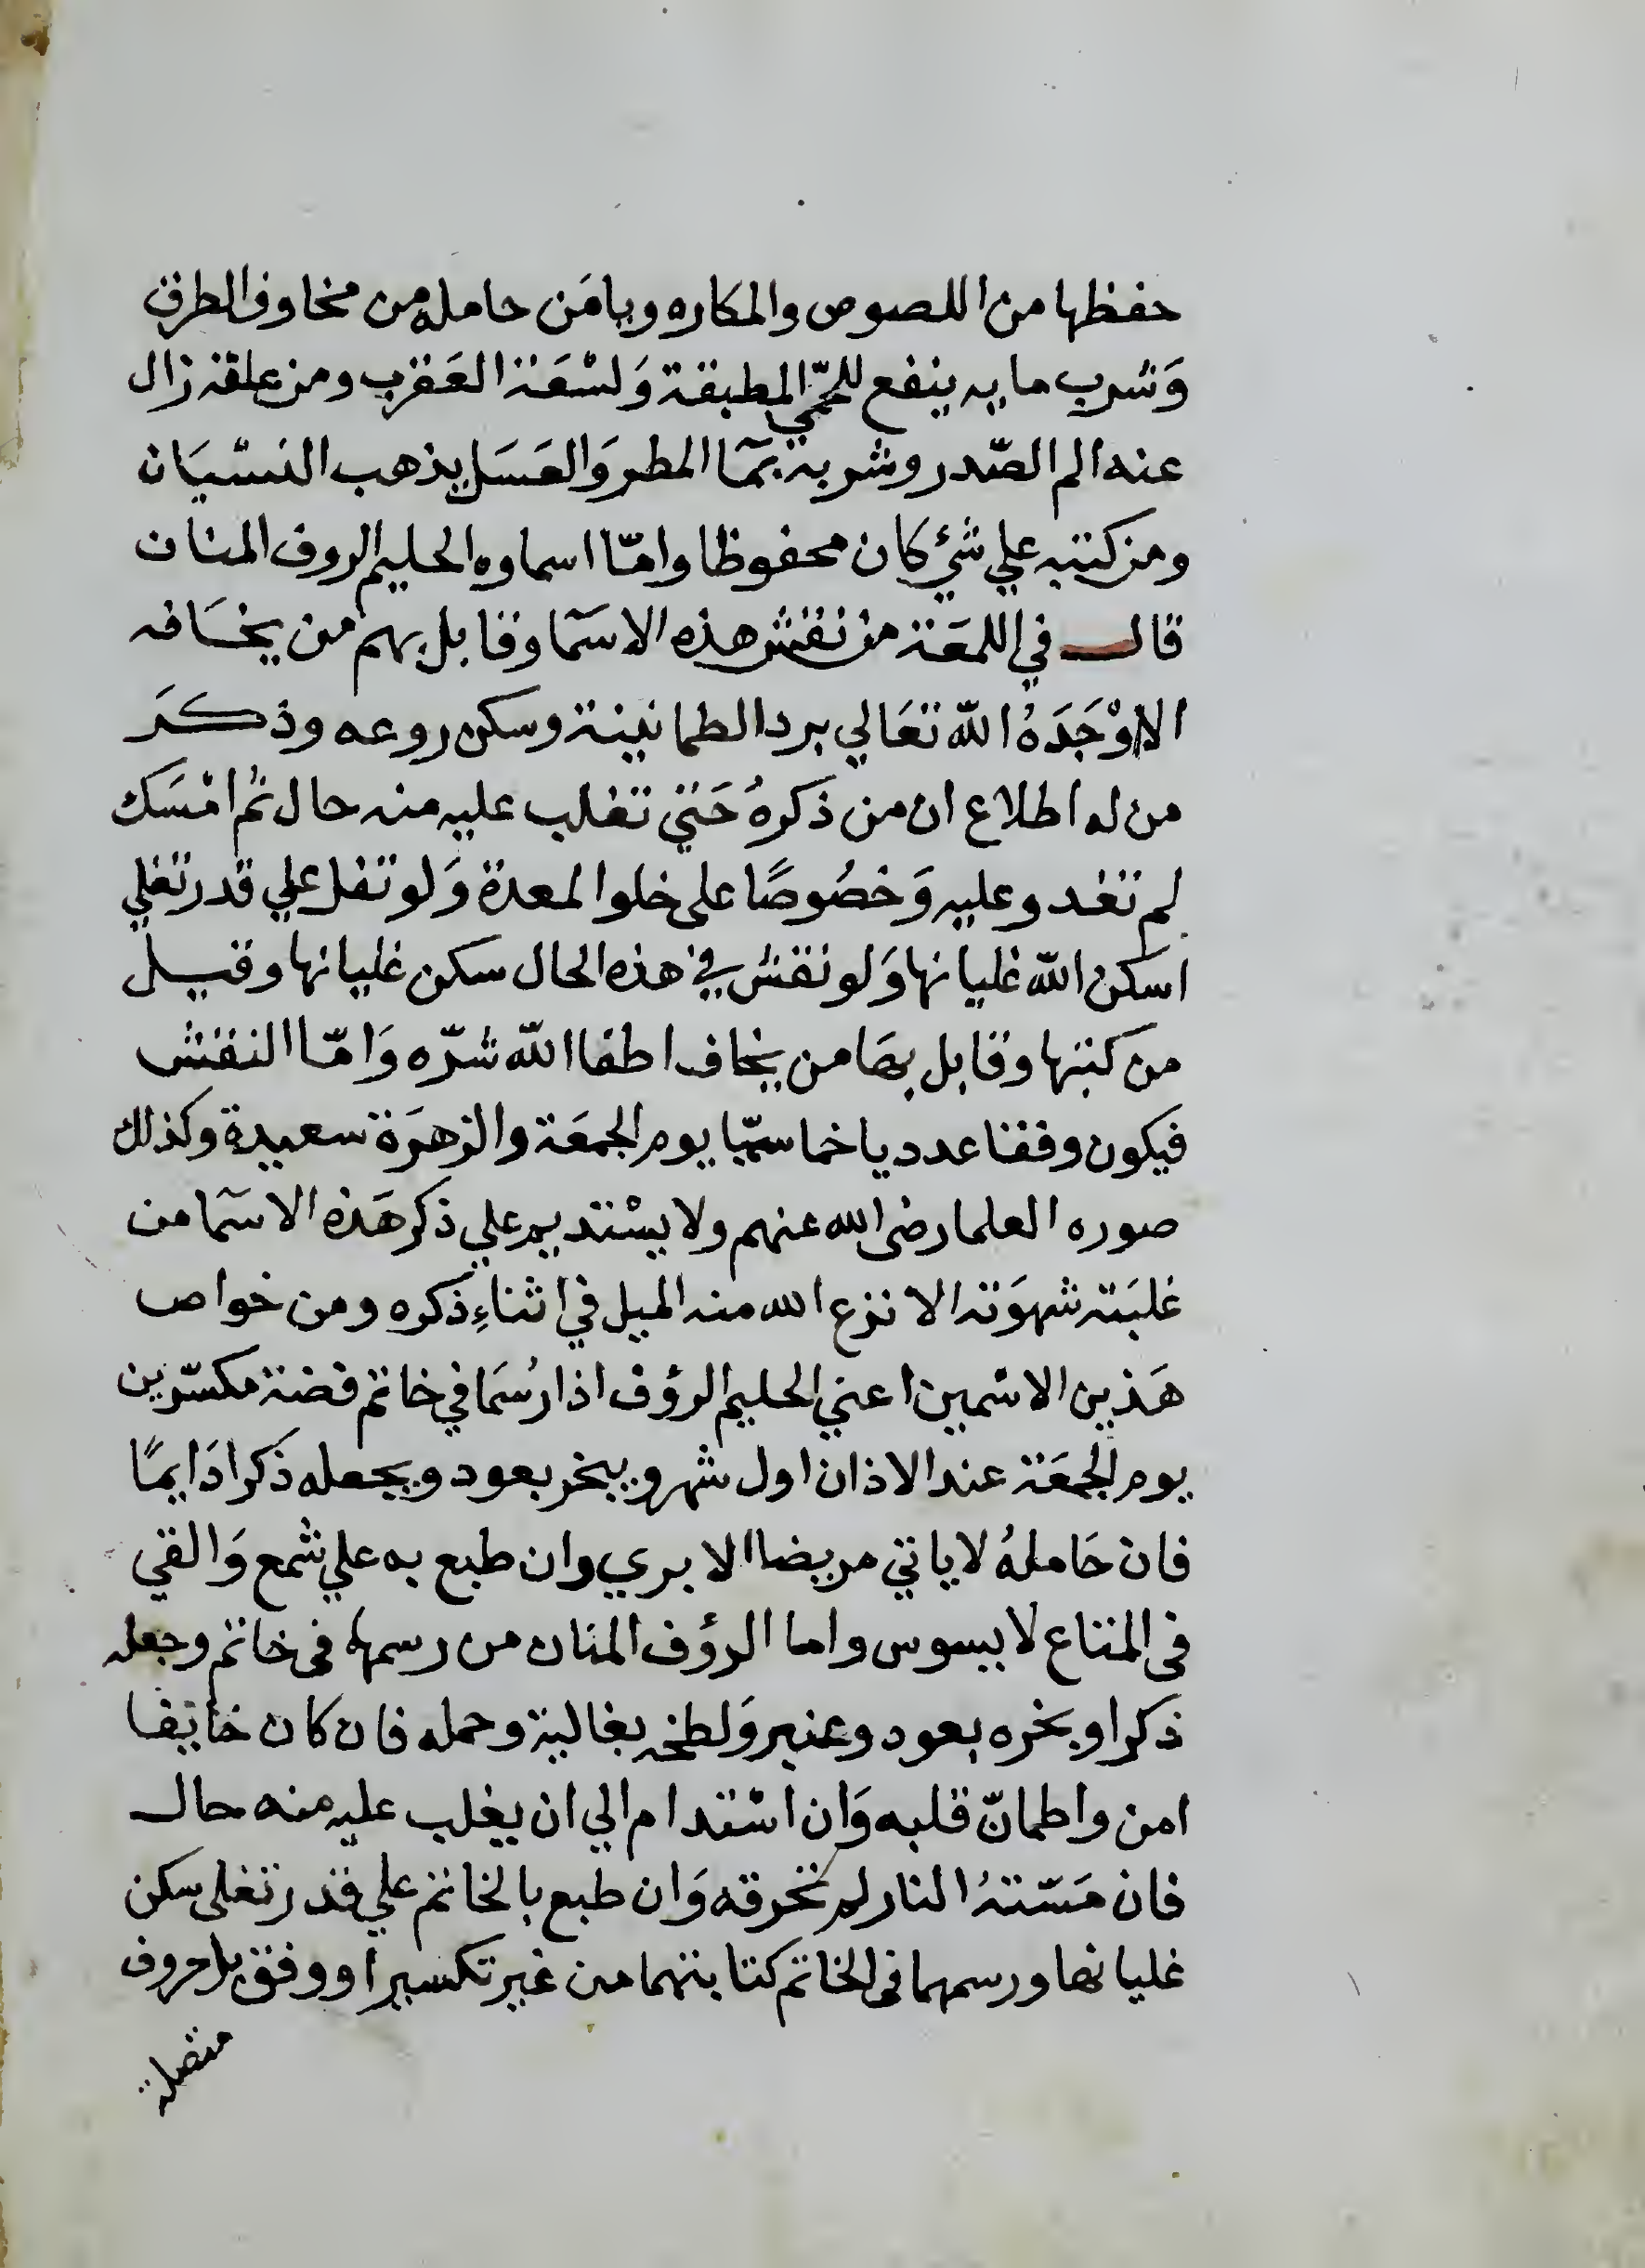 حفظها من اللصوص والمكاره ويامَن حامله من مخاوف الطرق
وَشرب مايه ينفع للحمّي المطبقة وَلسْعَة العَقرب ومن علقه زال
عنه الم الصّدر وشربه بمآ المطر وَالعَسَل يذهب النسْيَان
ومن كتبه علي شيْ كان محفوظا وامّا اسماوه الحليم الروف المنان
قال في اللمعَة من نقش هذه الاسمآ وقابل بهم من يخَافه
الا وْجَدَهُ الله تعَالي برد الطمانينة وسكن روعه وذكَر
من له اطلاع ان من ذكرهُ حَتي تغلب عليه منه حال ثم امْسَك
لم تغدو عليه وَخصُوصًا على خلو المعدة وَلو تفل علي قدر تغلي
اسكن الله غليانها وَلو نقش في هذه الحال سكن غليانها وقيل
من كتبها وقابل بهَا من يخاف اطفا الله شرّه وَامّا النقش
فيكون وفقنا عدديا خماسيّا يوم الجمعَة والزهرَة سعيدة وكذلك
صوره العلما رضى الله عنهم ولا يسْتديم علي ذكر هَذه الاسمآ من
غلبَته شهوَته الا نزع الله منه الميل في اثناءِ ذكره ومن خواص
هَذين الاسْمين اعني الحليم الرؤف اذا رُسَما في خاتم فضة مكسّرين
يوم الجمعَة عند الاذان اول شهر ويبخر بعود ويجعله ذكرا دَايمًا
فان حَاملهُ لا ياتي مريضا الا بري وان طبع به علي شمع وَالقي
فى المتاع لا يسوس واما الرؤف المنان من رسمها فى خاتم وجعله
ذكرا وبخره بعود وعنبر وَلطخه بغالية وحمله فان كان خايفا
امن واطمانّ قلبه وَان اسْتدام الي ان يغلب عليه منه حال
فان مَسّتهُ النار لم تحرقه وَان طبع بالخاتم علي قدر تغلى سكن
غليانها ورسمهما فى الخاتم كتابتهما من غير تكسير او وفق بل حروف
متصلة